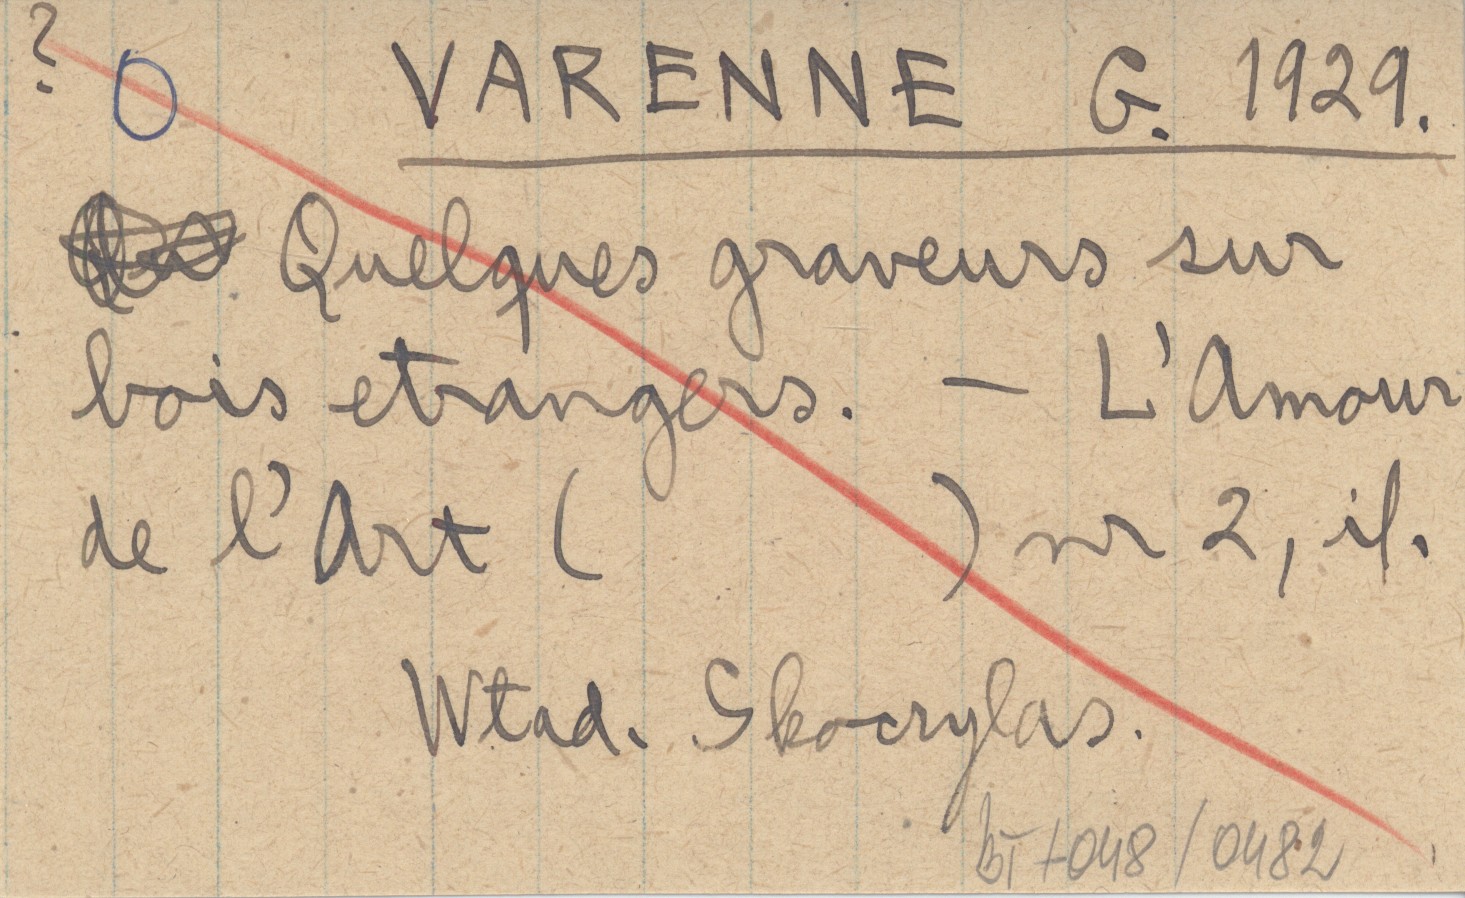 ? O VARENNE G. 1929.
Quelques graveurs sur
bois etrangers. — L'Amour
de l'Art ( ) nr 2, il.
Wład. Skoczylas.
/0482